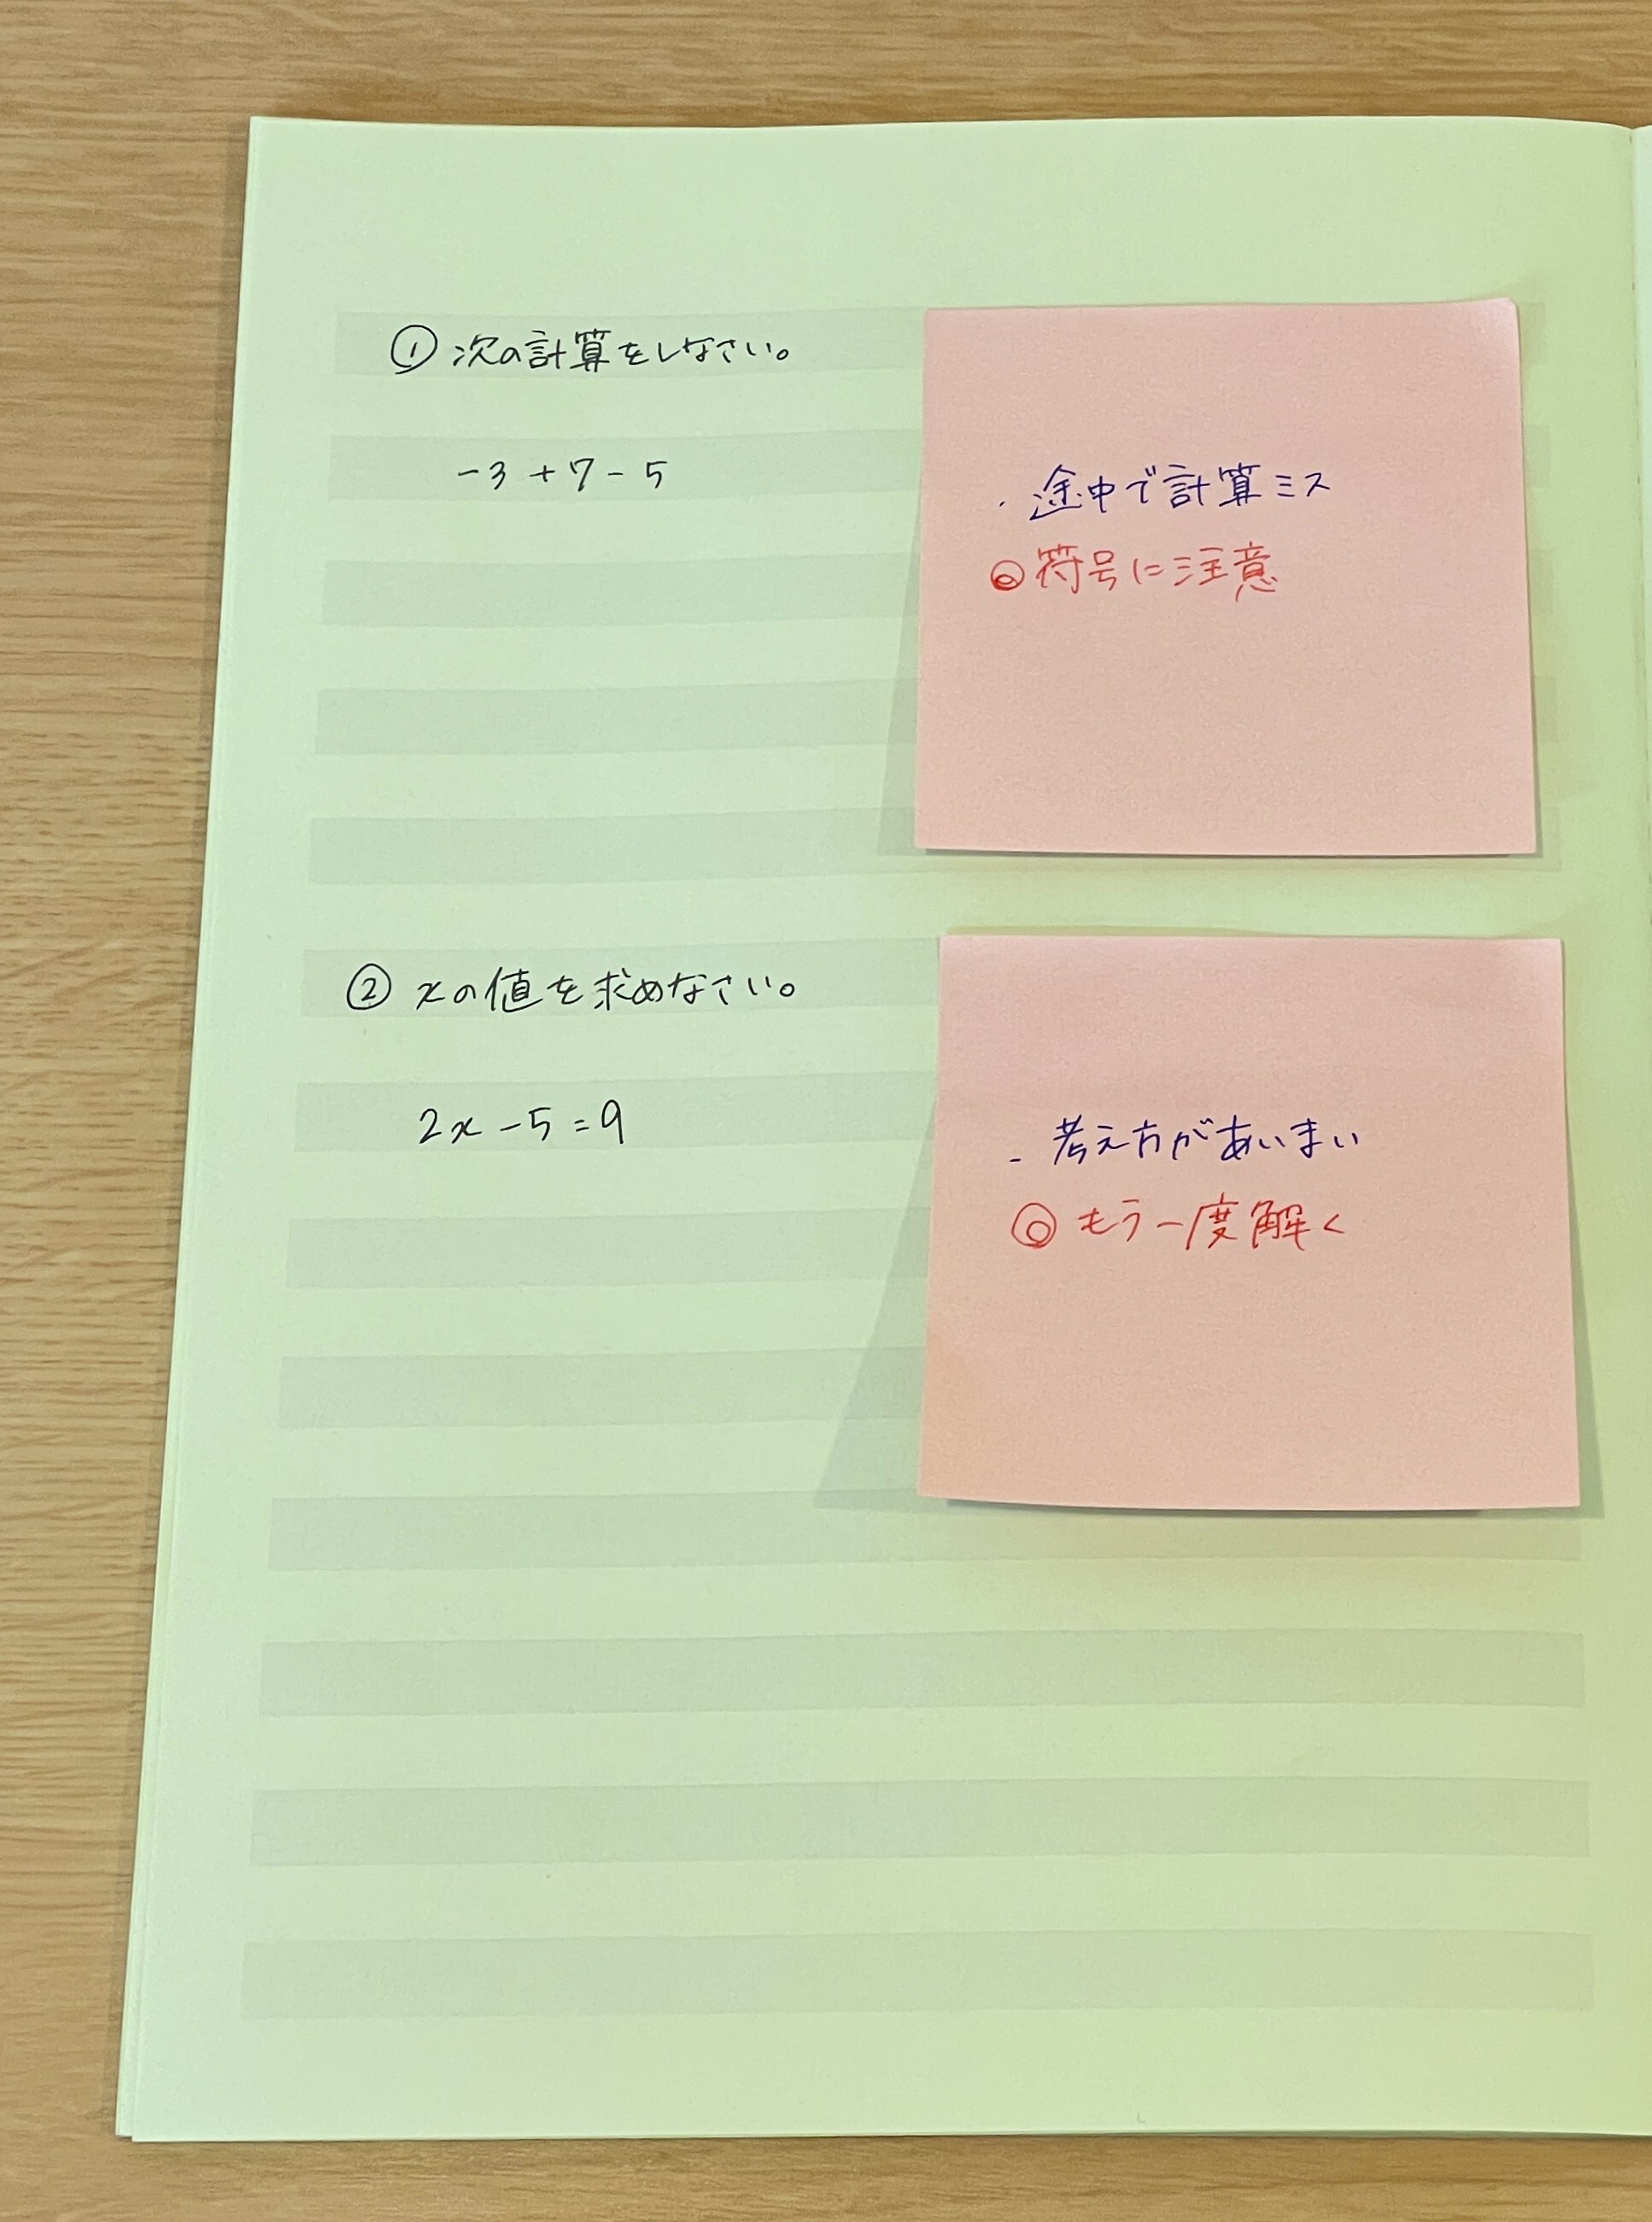 ① 次の計算をしなさい。
-3+7-5
・途中で計算ミス
◎符号に注意
② xの値を求めなさい。
2x-5=9
・考え方があいまい
◎もう一度解く